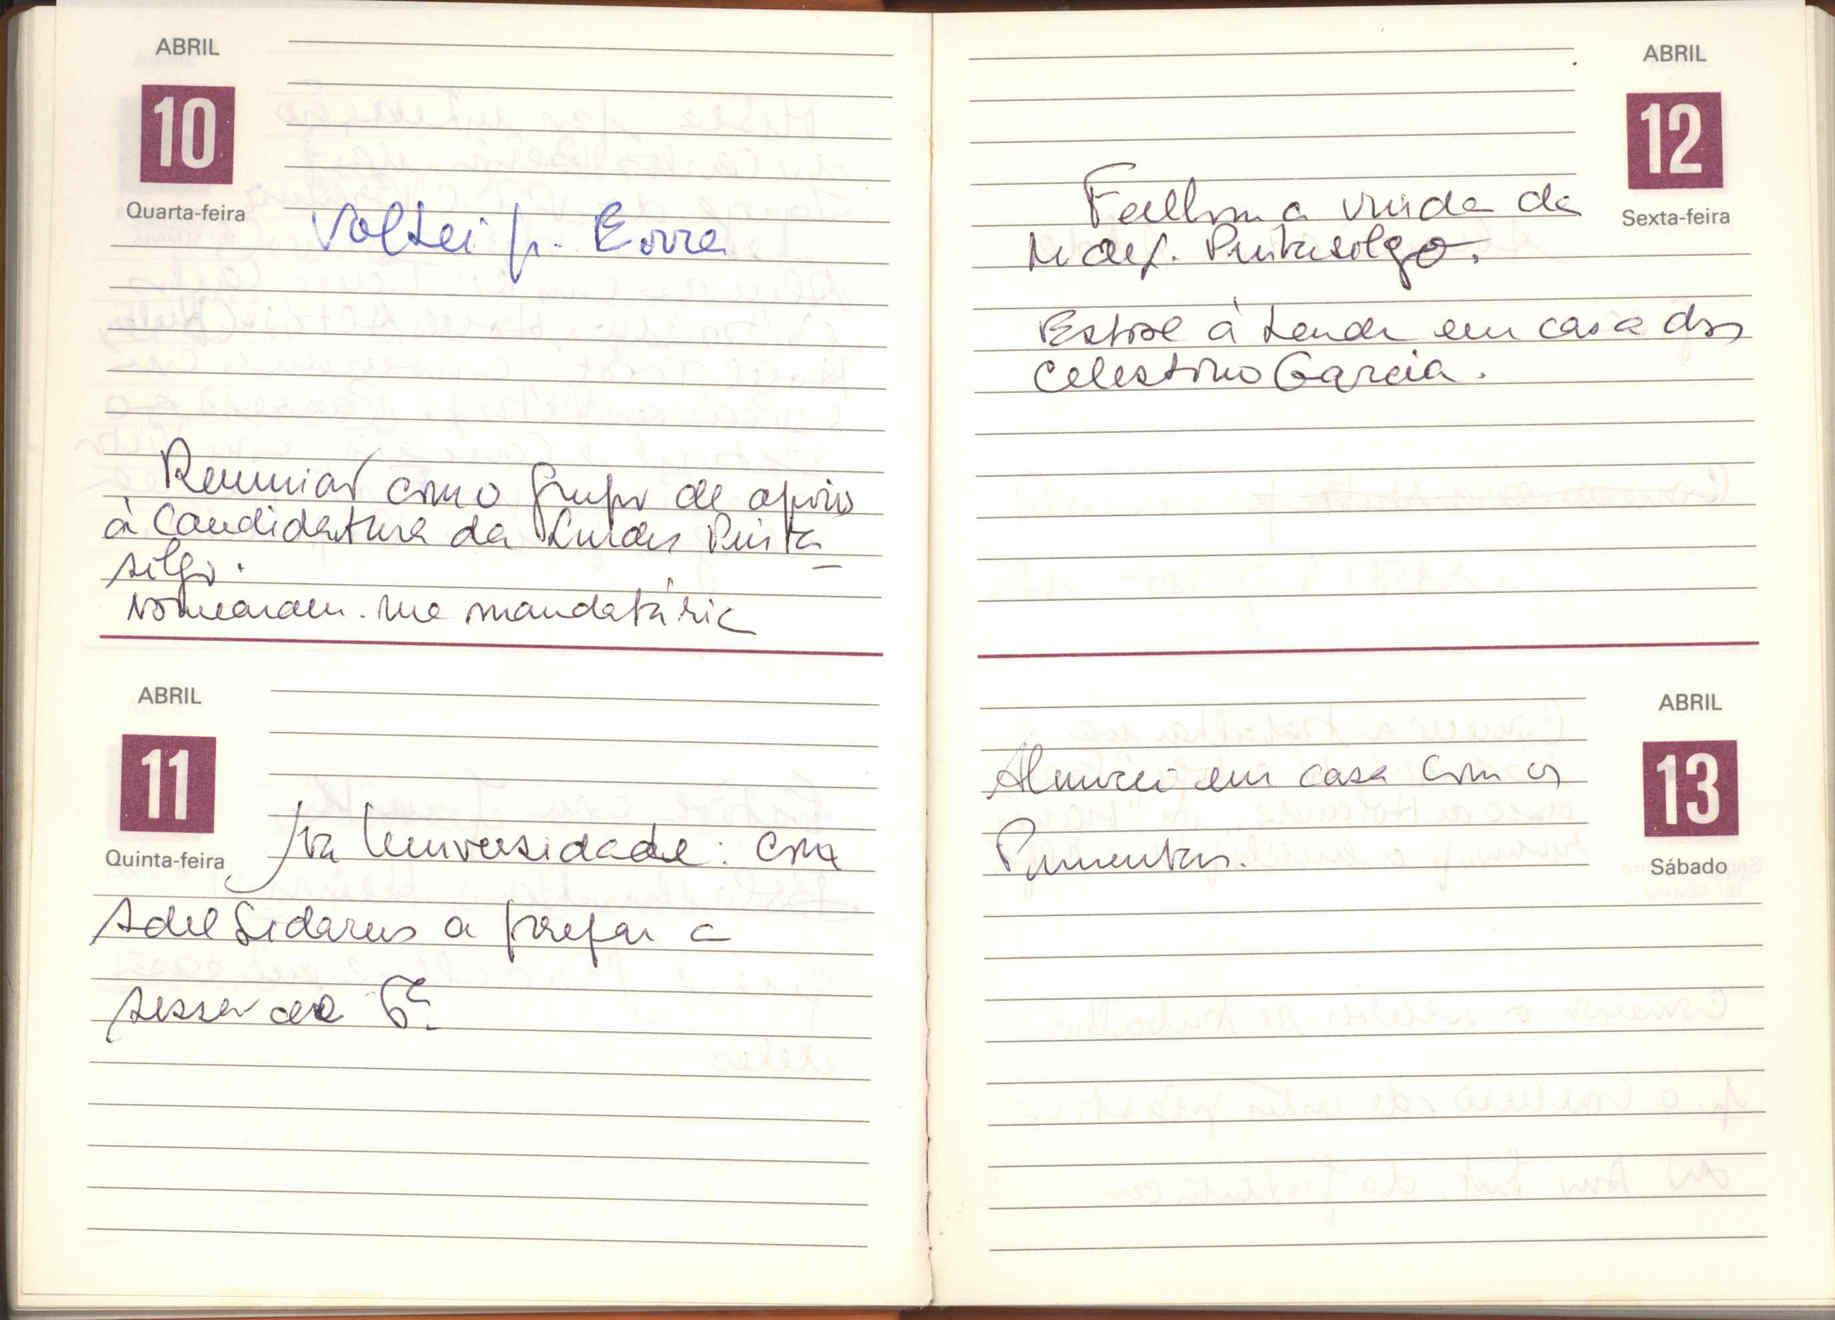 ABRIL
10
Quarta-feira
Voltei p. Évora
Reunião com o grupo de apoio
à candidatura da Lurdes Pinta
silgo.
Nomearam-me mandatária
ABRIL
11
Quinta-feira
Na Universidade: com
Adel Sidarus a prepar a
sessão de 6ª
ABRIL
12
Sexta-feira
Falhou a vinda da
Pintasilgo.
Estive à tarde em casa dos
Celestino Garcia.
ABRIL
13
Sábado
Almocei em casa com os
Pimentas.